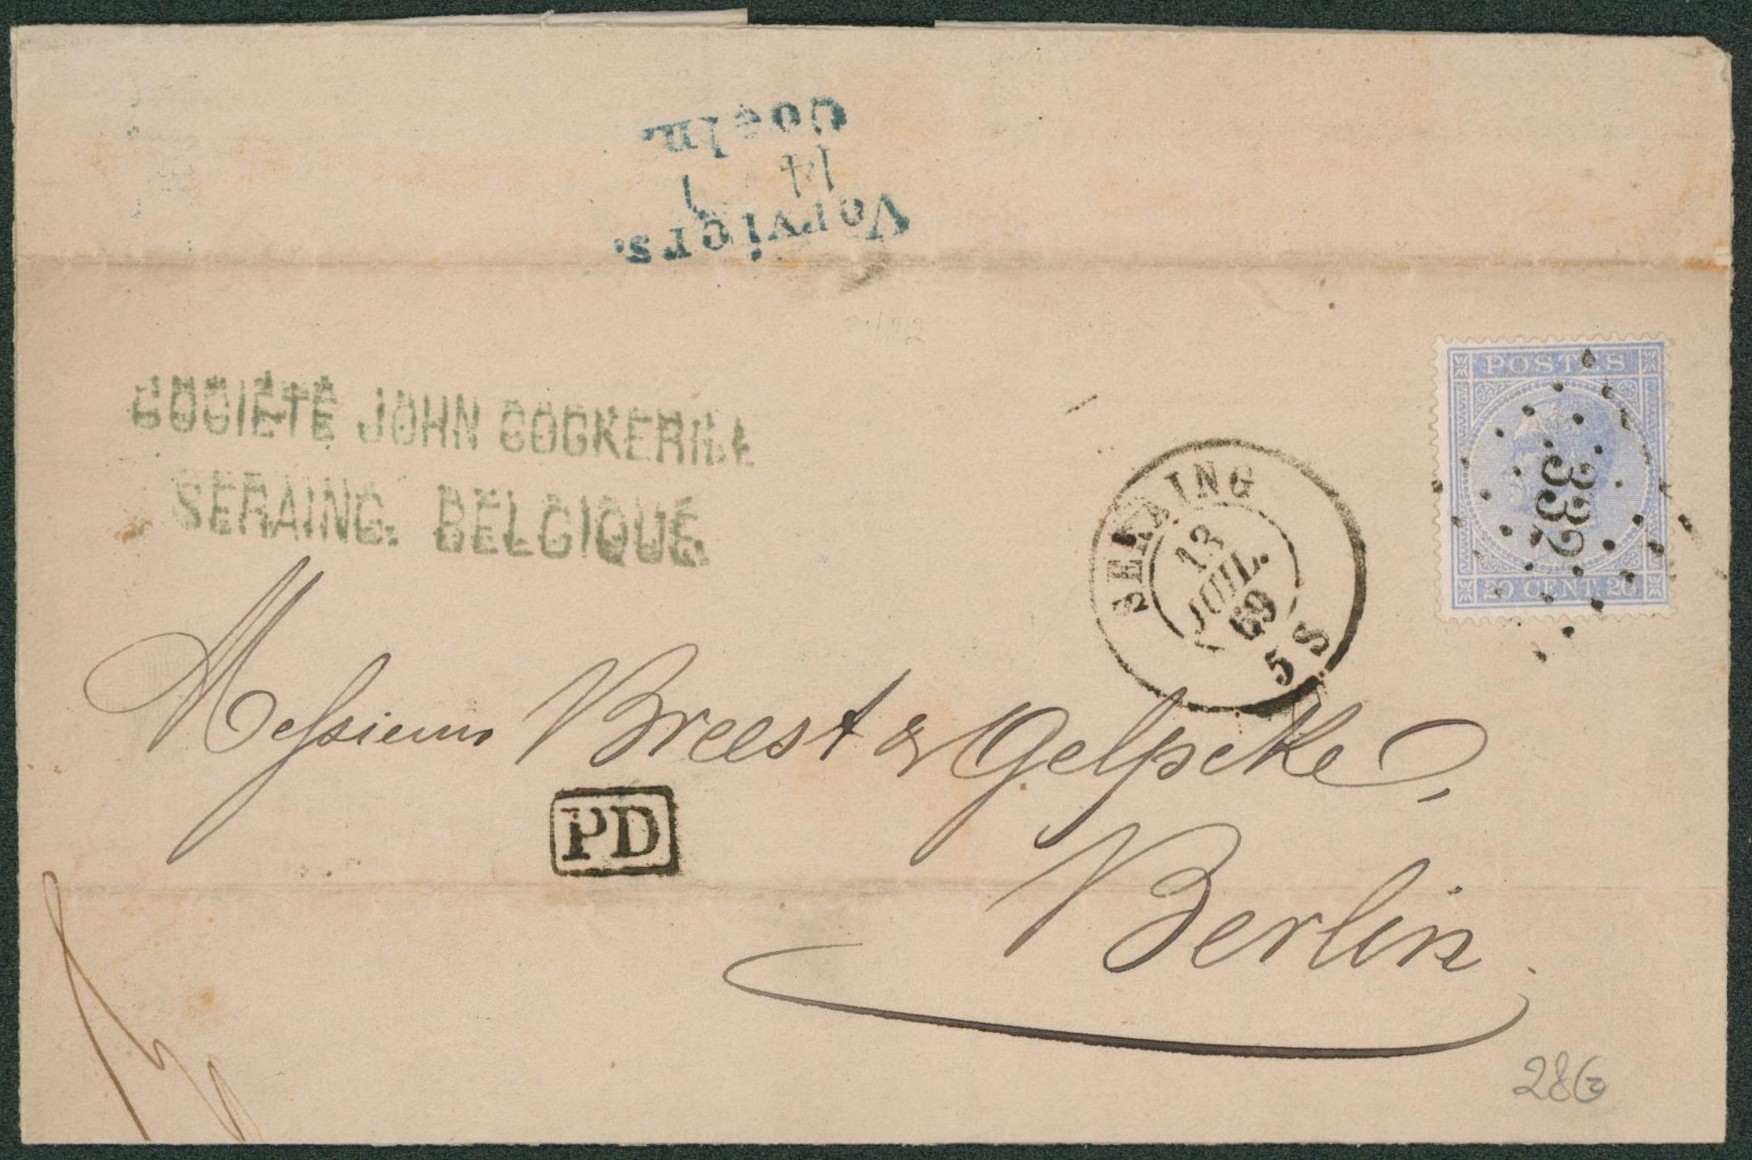 Verviers.
14 7
Coeln.
SOCIÉTÉ JOHN COCKERILL
SERAING. BELGIQUE.
POSTES
332
20 CENT. 20
SERAING
13
JUIL.
69
5 S
Messieurs Breest & Gelpcke,
PD
Berlin
286